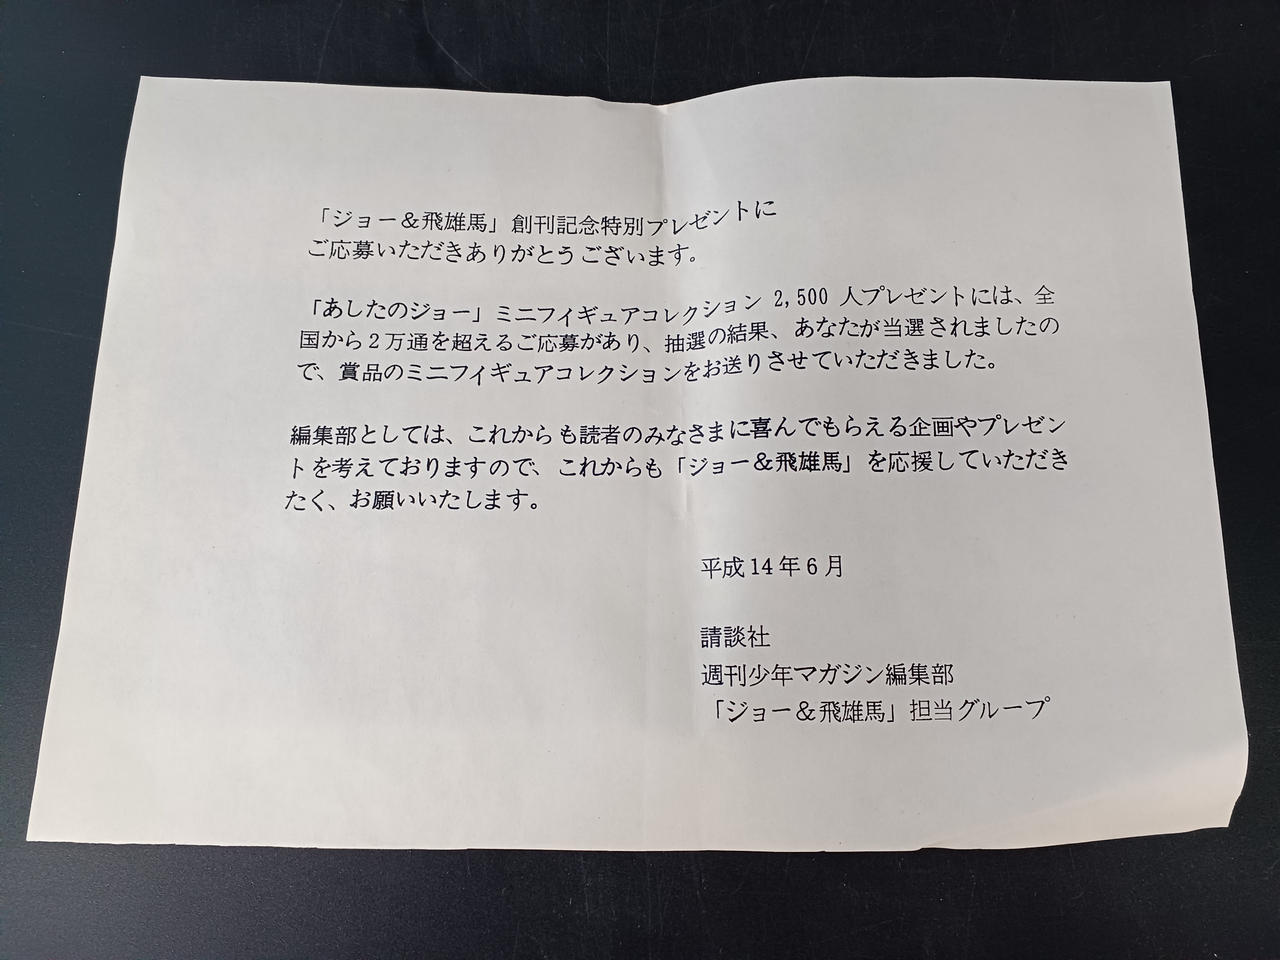 「ジョー＆飛雄馬」創刊記念特別プレゼントに
ご応募いただきありがとうございます。
「あしたのジョー」ミニフィギュアコレクション 2,500 人プレゼントには、全
国から２万通を超えるご応募があり、抽選の結果、あなたが当選されましたの
で、賞品のミニフィギュアコレクションをお送りさせていただきました。
編集部としては、これからも読者のみなさまに喜んでもらえる企画やプレゼン
トを考えておりますので、これからも「ジョー＆飛雄馬」を応援していただき
たく、お願いいたします。
平成14年６月
請談社
週刊少年マガジン編集部
「ジョー＆飛雄馬」担当グループ